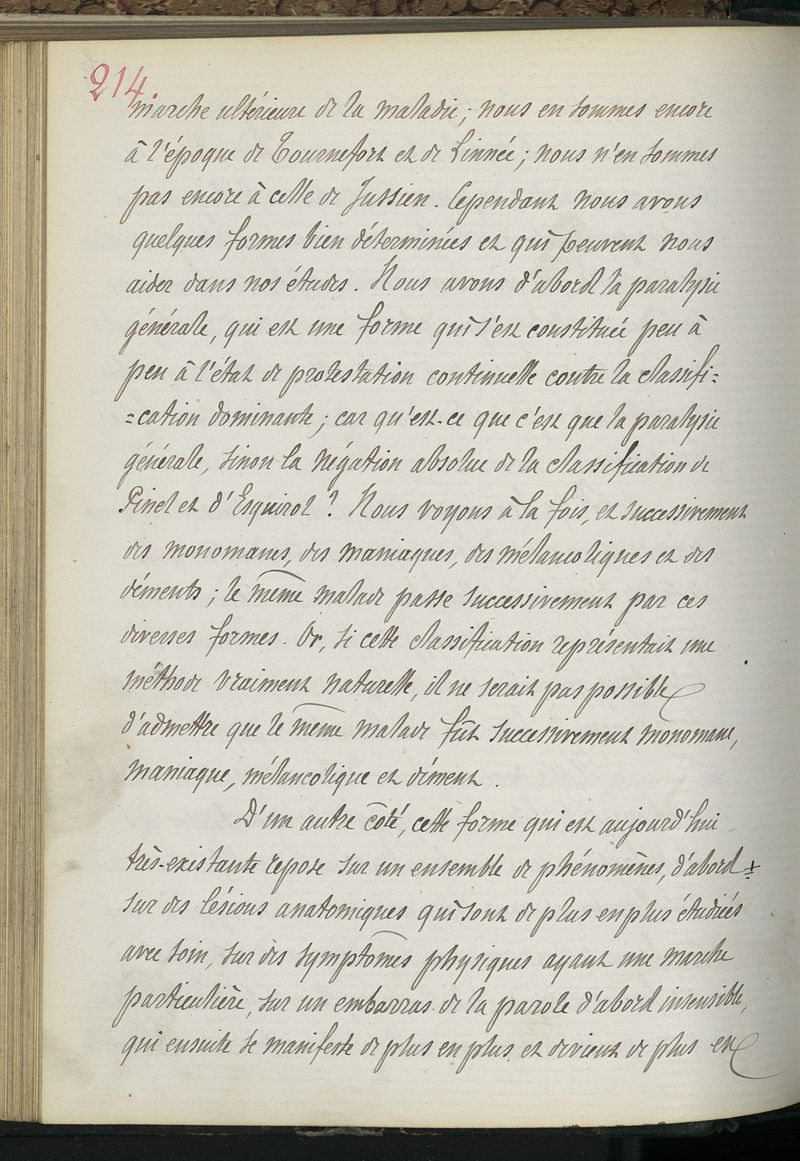 214.
marche ultérieure de la maladie ; nous en sommes encore
à l'époque de Tournefort et de Linnée ; nous n'en sommes
pas encore à celle de Jussieu. Cependant nous avons
quelques formes bien déterminées et qui peuvent nous
aider dans nos études. Nous avons d'abord la paralysie
générale, qui est une forme qui s'est constituée peu à
peu à l'état de protestation continuelle contre la classifi=
=cation dominante ; car qu'est-ce que c'est que la paralysie
générale, sinon la négation absolue de la classification de
Pinel et d'Esquirol ? Nous voyons à la fois, et successivement
des monomanes, des maniaques, des mélancoliques et des
déments ; le même malade passe successivement par ces
diverses formes. Or, si cette classification représentait une
méthode vraiment naturelle, il ne serait pas possible
d'admettre que le même malade fût successivement monomane,
maniaque, mélancolique et dément.
D'un autre côté, cette forme qui est aujourd'hui
très-existante repose sur un ensemble de phénomènes, d'abord
sur des lésions anatomiques qui sont de plus en plus étudiées
avec soin, sur des symptômes physiques ayant une marche
particulière, sur un embarras de la parole d'abord insensible,
qui ensuite se manifeste de plus en plus et devient de plus en